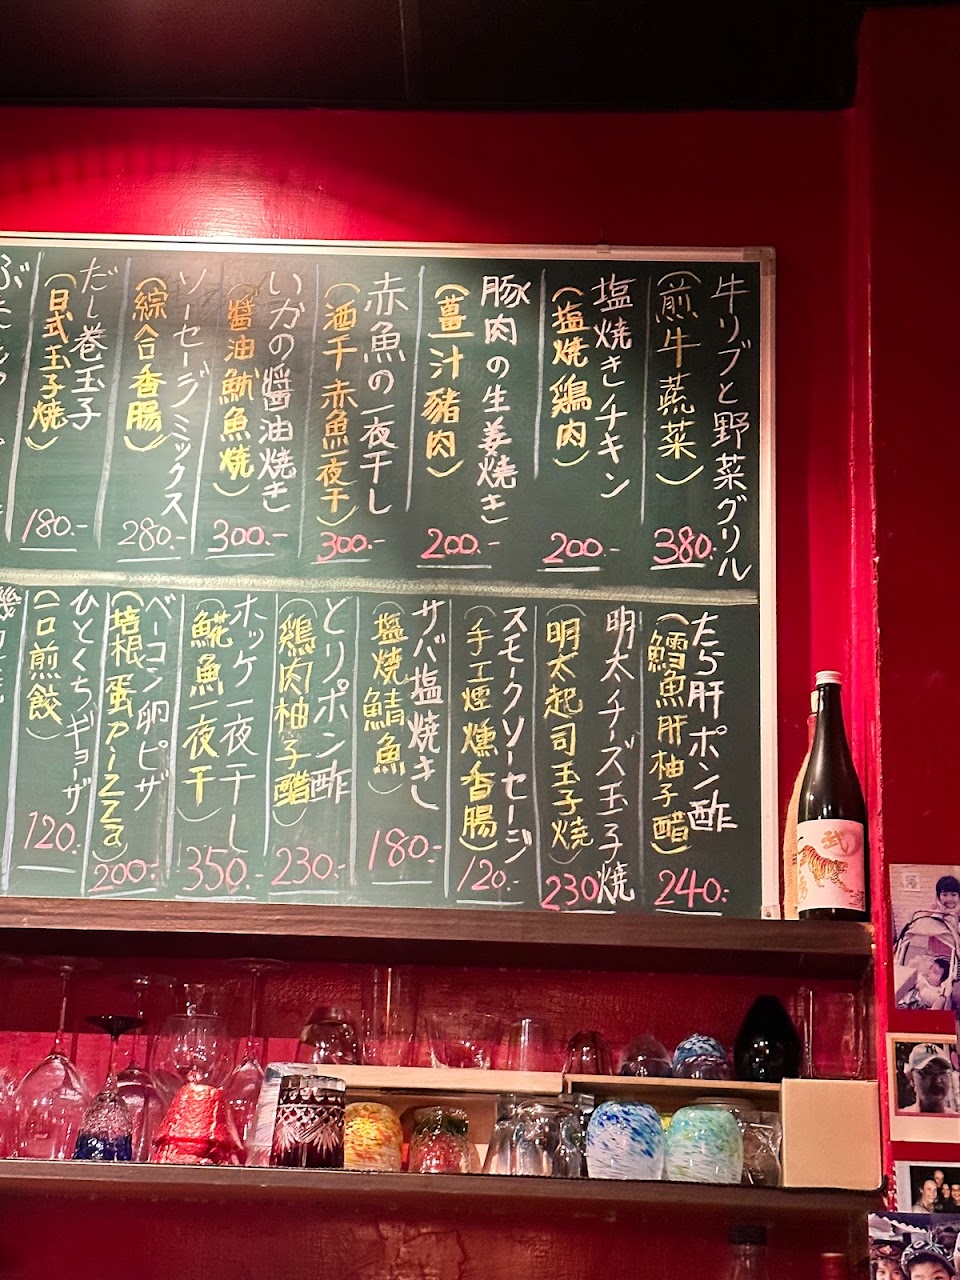 牛リブと野菜グリル
(煎牛蔬菜)
380.-
塩焼きチキン
(塩焼鶏肉)
200.-
豚肉の生姜焼き
(薑汁豬肉)
200.-
赤魚の一夜干し
(酒干赤魚一夜干)
300.-
いかの醤油焼き
(醬油魷魚焼)
300.-
ソーセージミックス
(綜合香腸)
280.-
だし巻玉子
(日式玉子焼)
180.-
たら肝ポン酢
(鱈魚肝柚子醋)
240.-
明太チーズ玉子焼
(明太起司玉子焼)
230
スモークソーセージ
(手工煙燻香腸)
120.-
サバ塩焼き
(塩焼鯖魚)
180.-
とりポン酢
(鶏肉柚子醋)
230.-
ホッケ一夜干し
(𩸽魚一夜干)
350.-
ベーコン卵ピザ
(培根蛋Pizza)
200.-
ひとくちギョーザ
(一口煎餃)
120.-